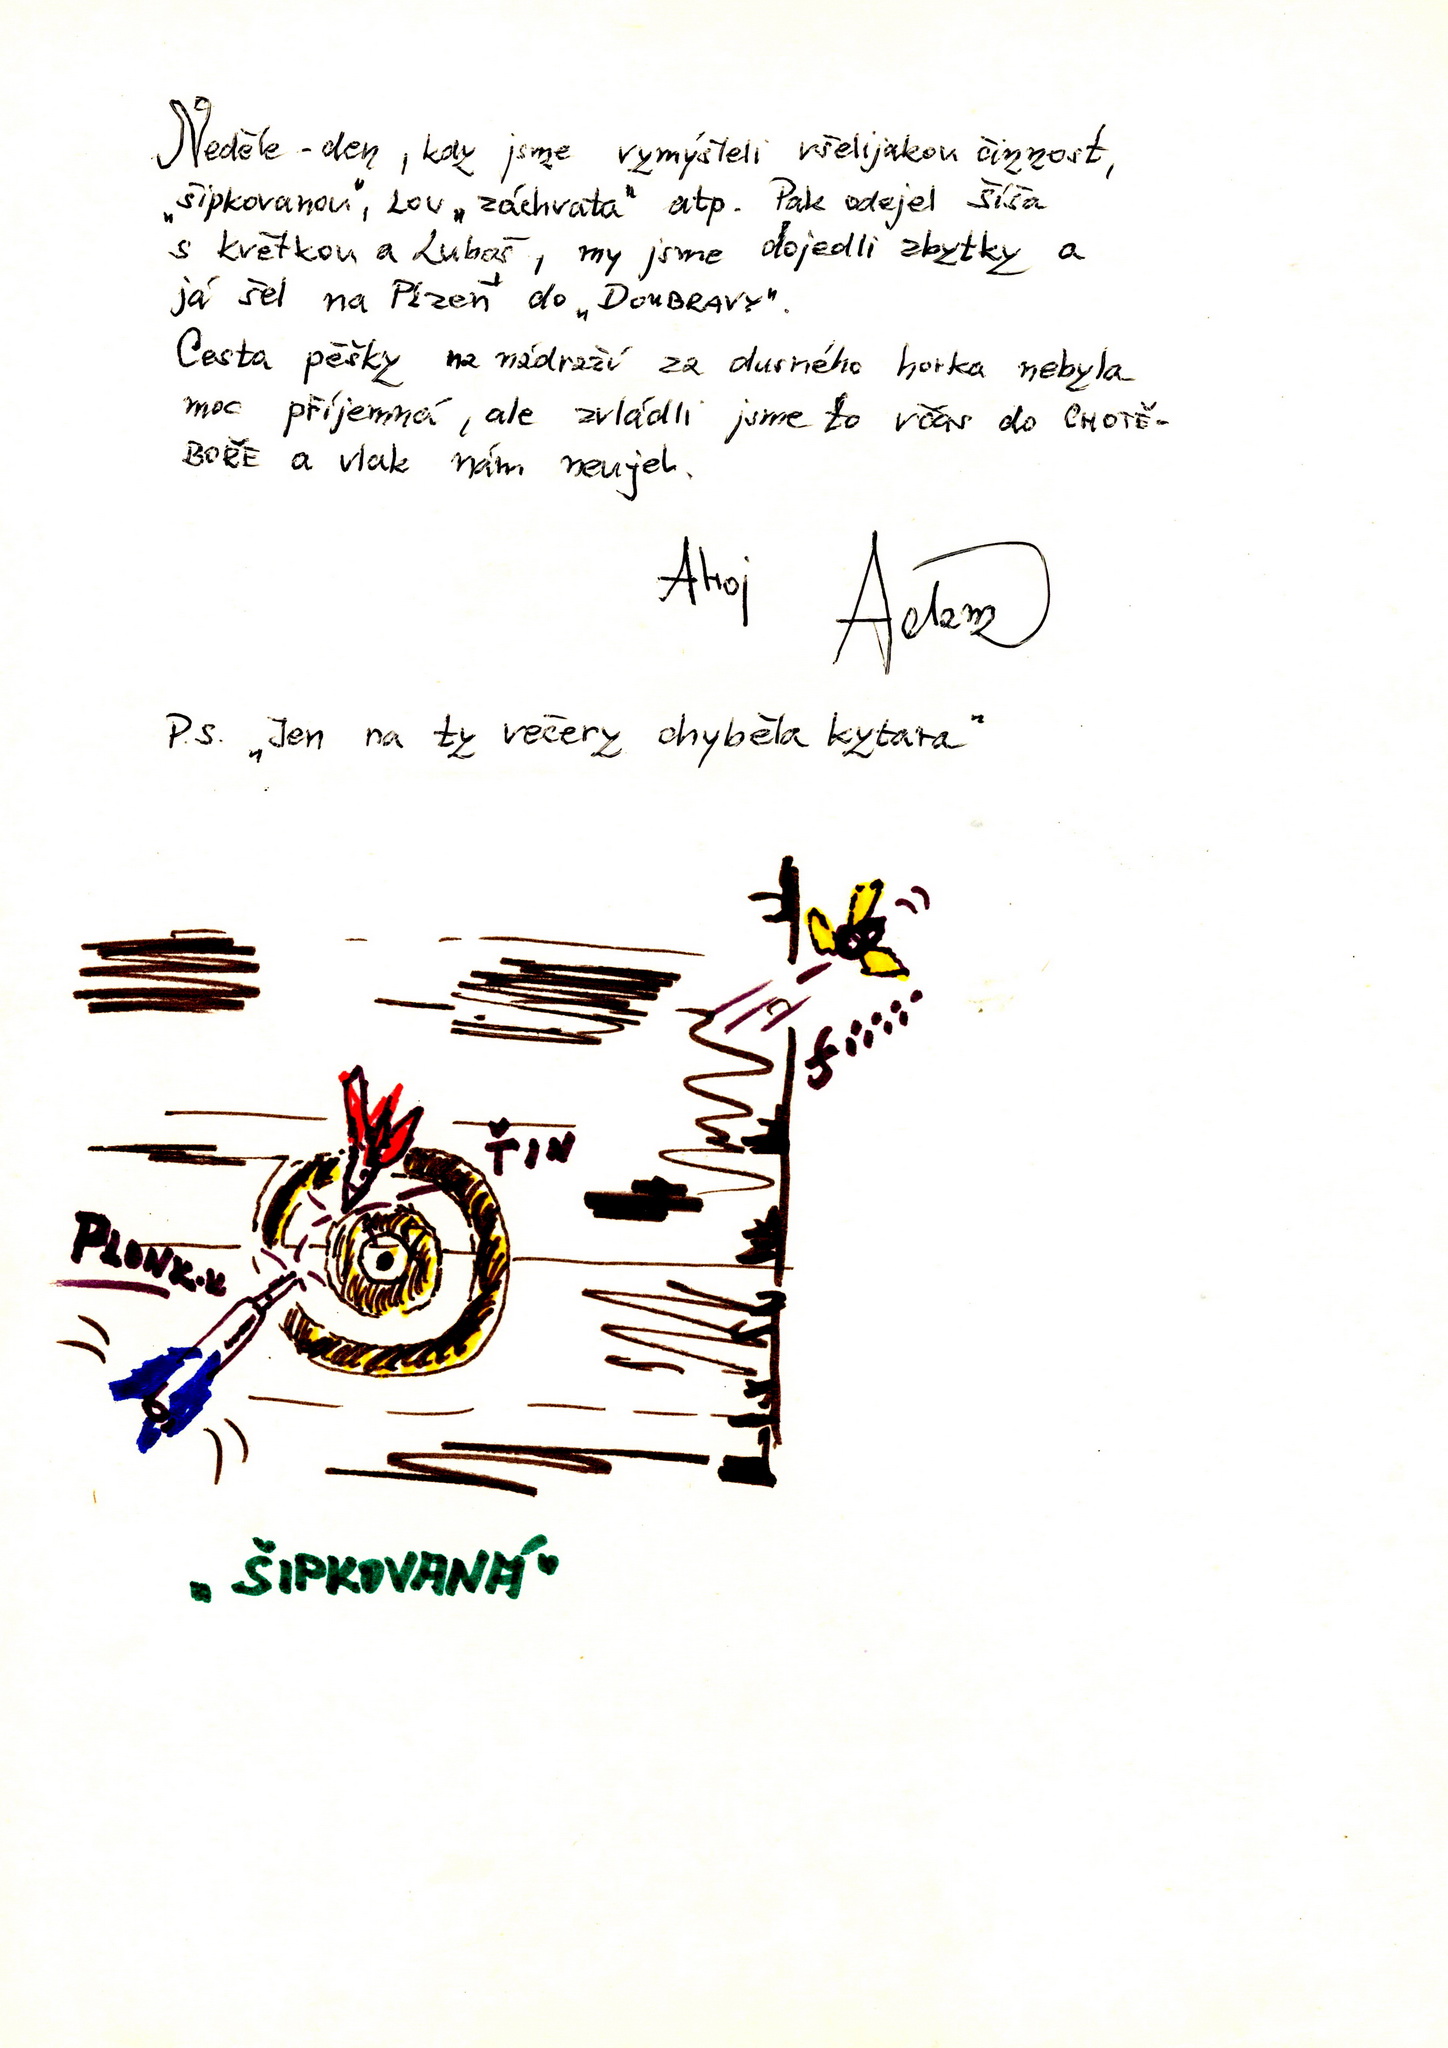 Neděle - den, kdy jsme vymýšleli všelijakou činnost,
„šipkovanou", Lov „záchvata" atp. Pak odejel šíša
s květkou a Luboš, my jsme dojedli zbytky a
já šel na Plzeň do „DOUBRAVY".
Cesta pěšky na nádraží za dusného horka nebyla
moc příjemná, ale zvládli jsme to včas do CHOTĚ-
BOŘE a vlak nám neujel.
Ahoj Adam
P.S. „Jen na ty večery chyběla kytara"
fiiii.....
ŤIN
PLONK.K
„ŠIPKOVANÁ"